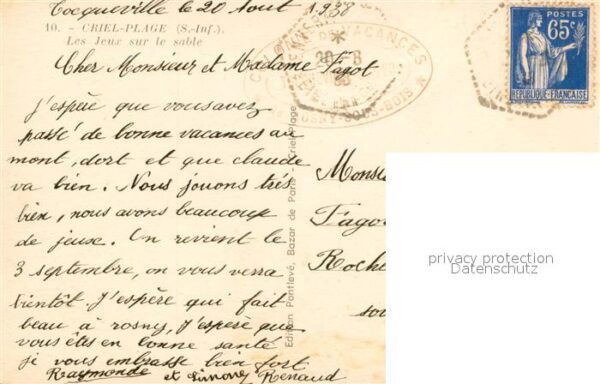 Tocqueville le 20 Aout 1938
10. - CRIEL-PLAGE (S.-Inf.)
Les Jeux sur le sable
Cher Monsieur et Madame Fagot
j'espère que vous avez
passé de bonne vacances au
mont, dort et que claude
va bien. Nous jouons très
bien, nous avons beaucoup
de jeux. On revient le
3 septembre, on vous verra
bientôt. J'espère qui fait
beau à rosny, J'espère que
vous êtes en bonne santé
je vous embrasse bien fort
Raymonde et Simone Renaud
Edition Pontlevé, Bazar de Paris - Criel-Plage
VACANCES
ROSNY-SOUS-BOIS
20-8
38
POSTES
65c
REPUBLIQUE FRANÇAISE
Monsie
Fago
Roche
sou
privacy protection
Datenschutz